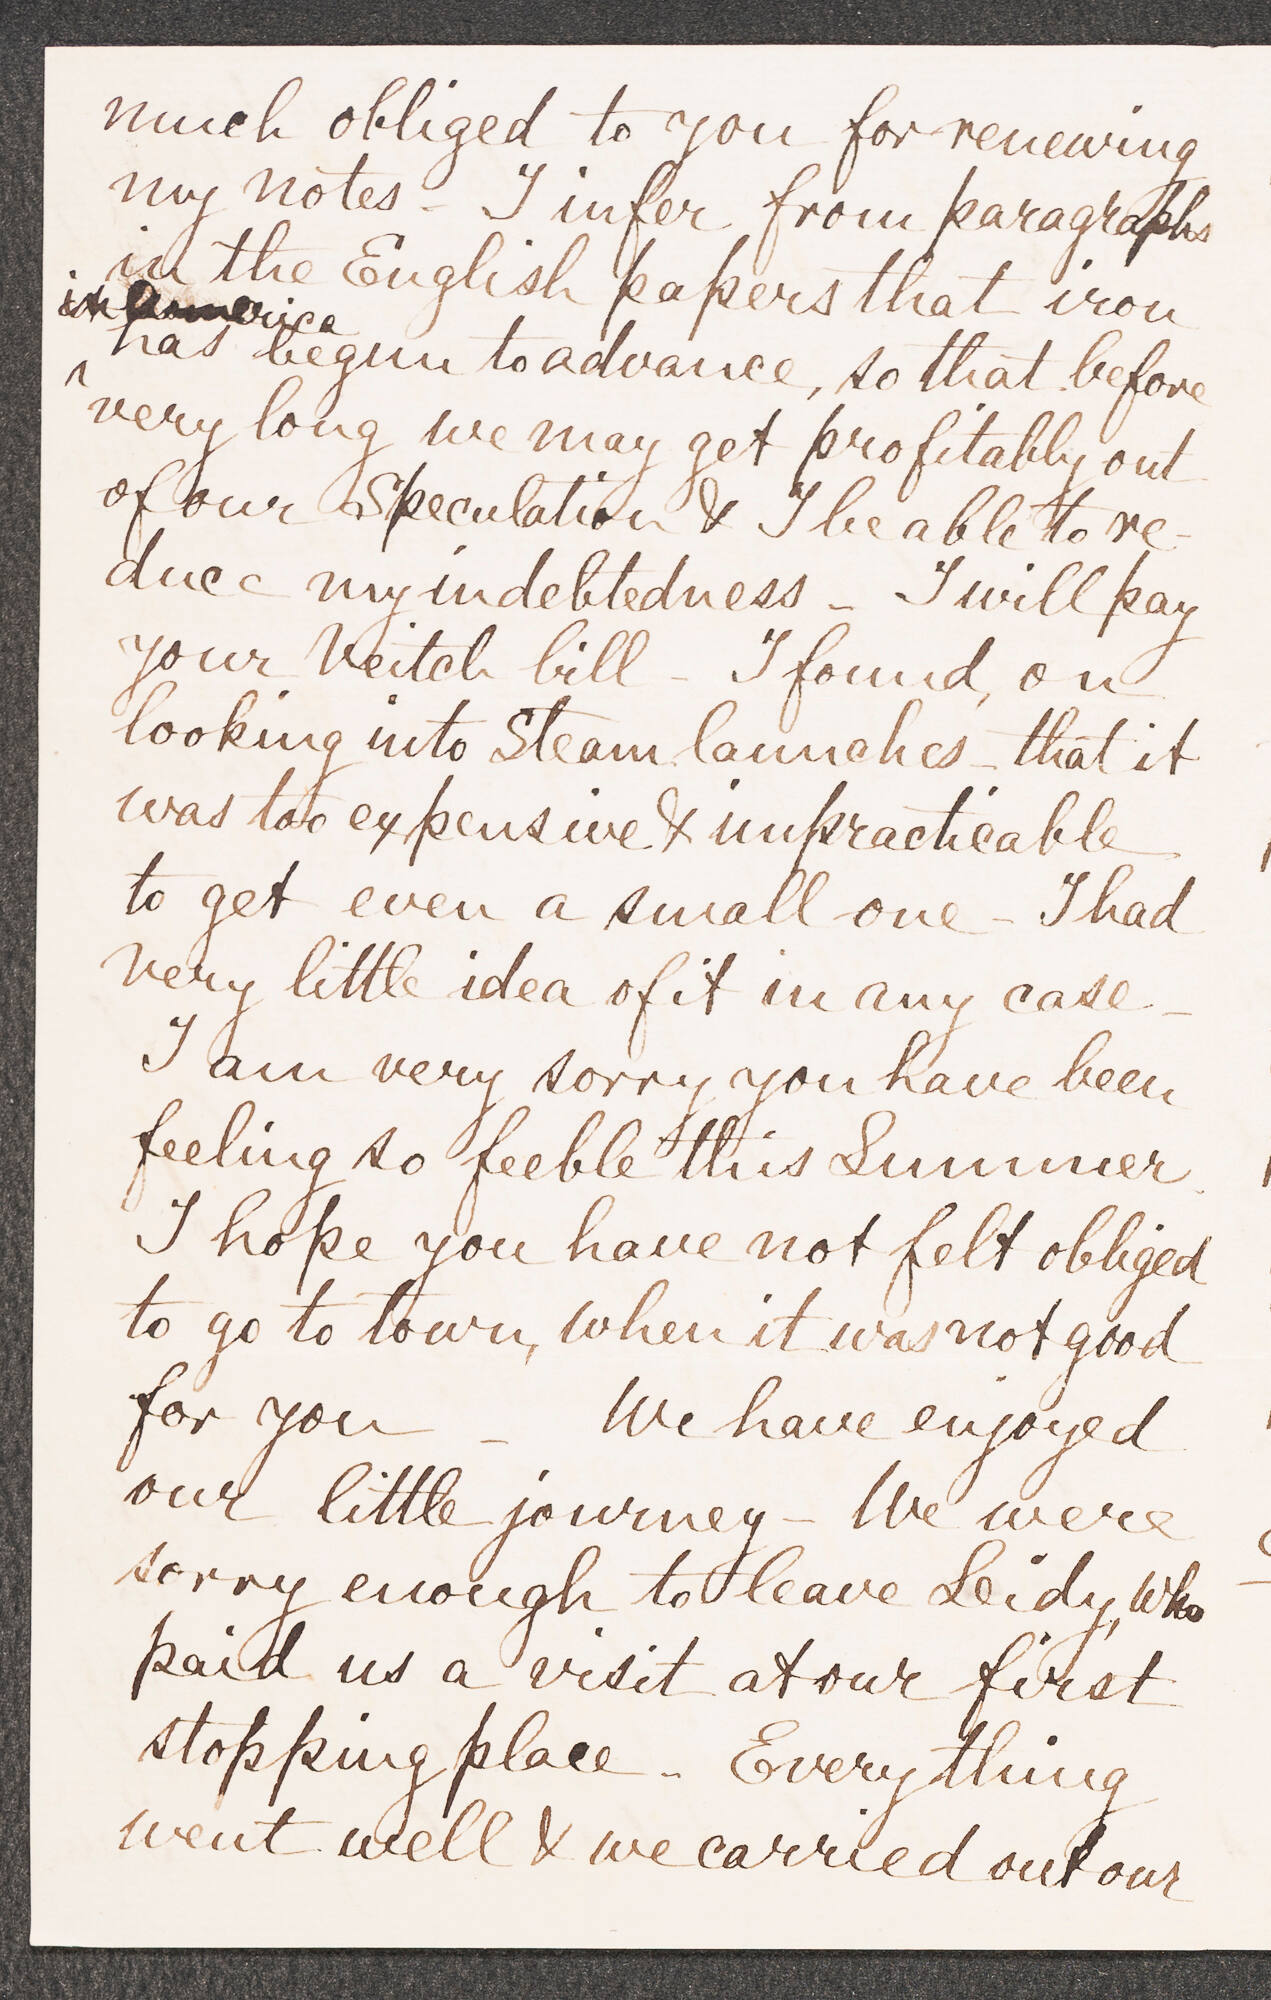 much obliged to you for renewing
my notes - I infer from paragraphs
in the English papers that iron
in America
has begun to advance, so that before
very long we may get profitably out
of our Speculation & I be able to re-
duce my indebtedness - I will pay
your Veitch bill - I found, on
looking into Steam launches - that it
was too expensive & impracticable
to get even a small one - I had
very little idea of it in any case -
I am very sorry you have been
feeling so feeble this Summer.
I hope you have not felt obliged
to go to town, when it was not good
for you - We have enjoyed
our little journey - We were
sorry enough to leave Leidy, who
paid us a visit at our first
stopping place - Everything
went well & we carried out our